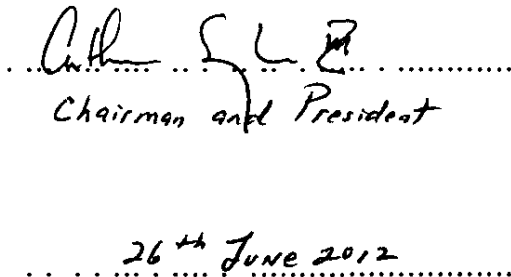 Chairman and President
26th June 2012